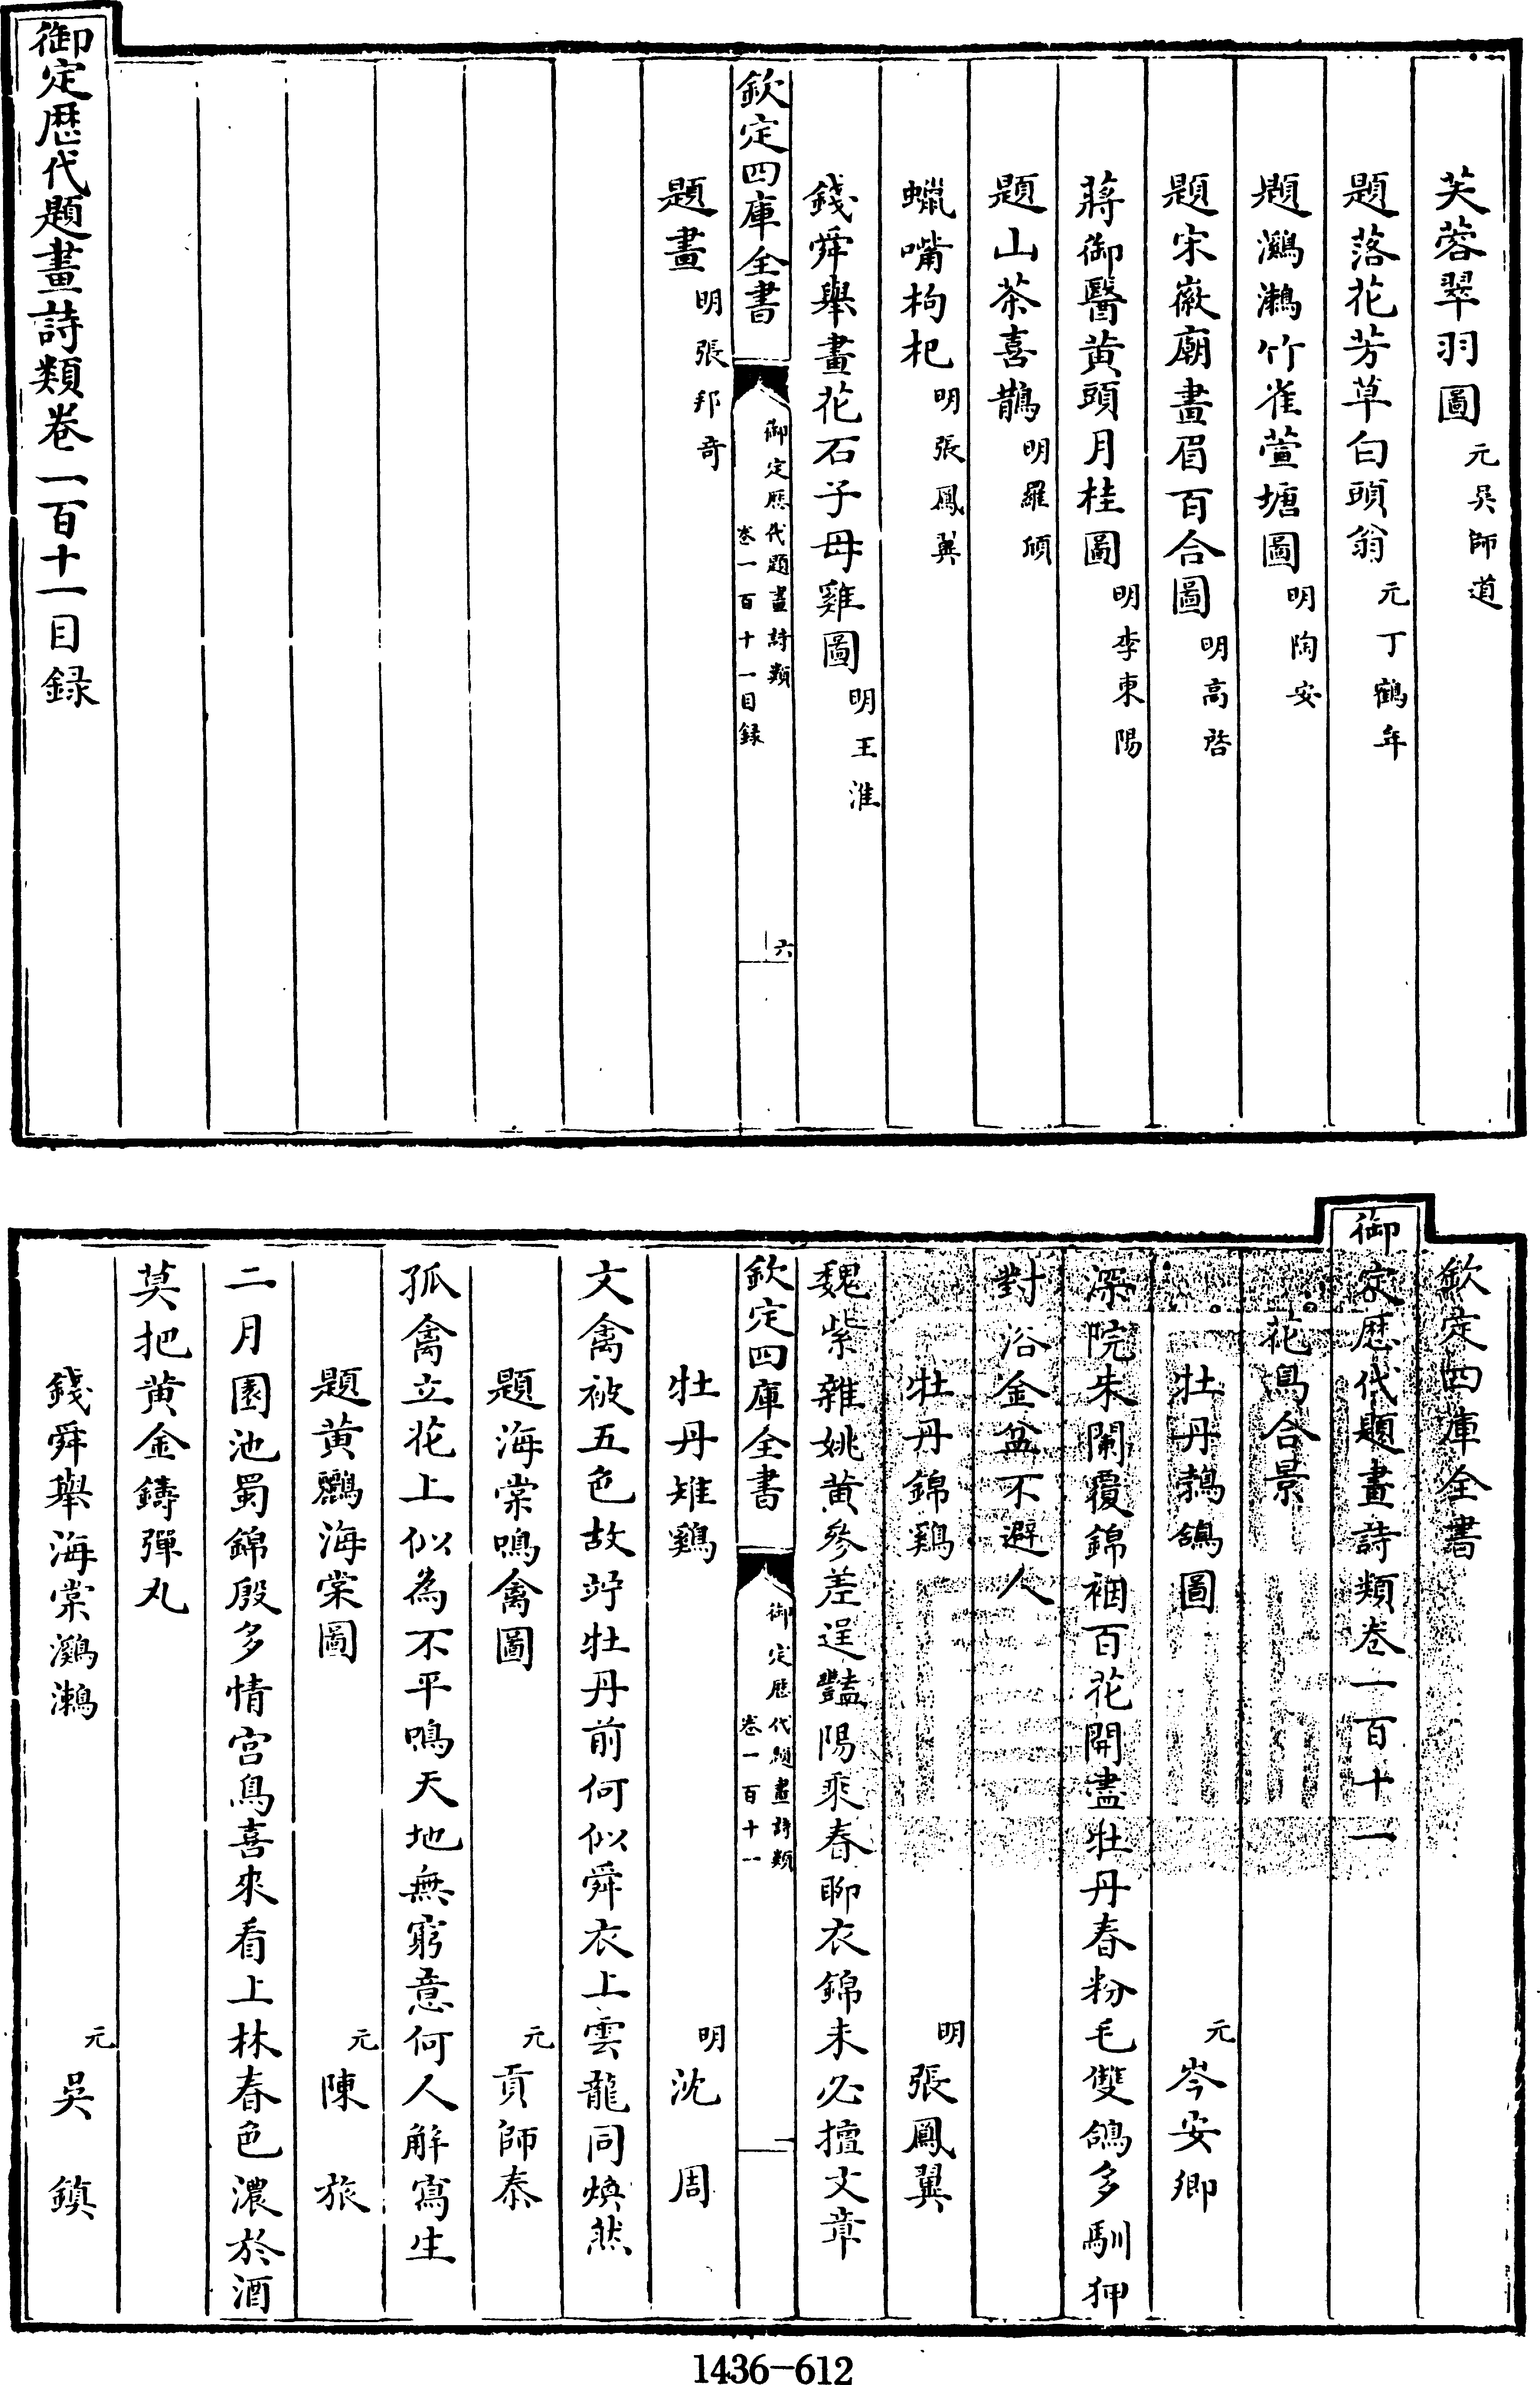 芙蓉翠羽圖元吳師道
題落花芳草白頭翁元丁鶴年
題鸂鶒竹雀萱塘圖明陶安
題宋徽廟畫眉百合圖明高啓
蔣御醫黃頭月桂圖明李東陽
題山茶喜鵲明羅頎
蠟嘴枸杞明張鳳翼
錢舜舉畫花石子母雞圖明王淮
欽定四庫全書
御定歷代題畫詩類
卷一百十一目録
六
題畫明張邦奇
御定歷代題畫詩類卷一百十一目録
欽定四庫全書
御定歷代題畫詩類卷一百十一
花鳥合景
牡丹鵓鴿圖元岑安卿
深院朱闌覆錦裀百花開盡牡丹春粉毛雙鴿多馴狎
對浴金盆不避人
牡丹錦鷄明張鳳翼
魏紫雜姚黃參差逞豔陽乘春聊衣錦未必擅文章
欽定四庫全書
御定歷代題畫詩類
卷一百十一
一
牡丹雉鷄明沈周
文禽被五色故竚牡丹前何似舜衣上雲龍同煥然
題海棠鳴禽圖元貢師泰
孤禽立花上似為不平鳴天地無窮意何人解寫生
題黃鸝海棠圖元陳旅
二月園池蜀錦殷多情宫鳥喜來看上林春色濃於酒
莫把黃金鑄彈丸
錢舜舉海棠鸂鶒元吳鎮
1436-612